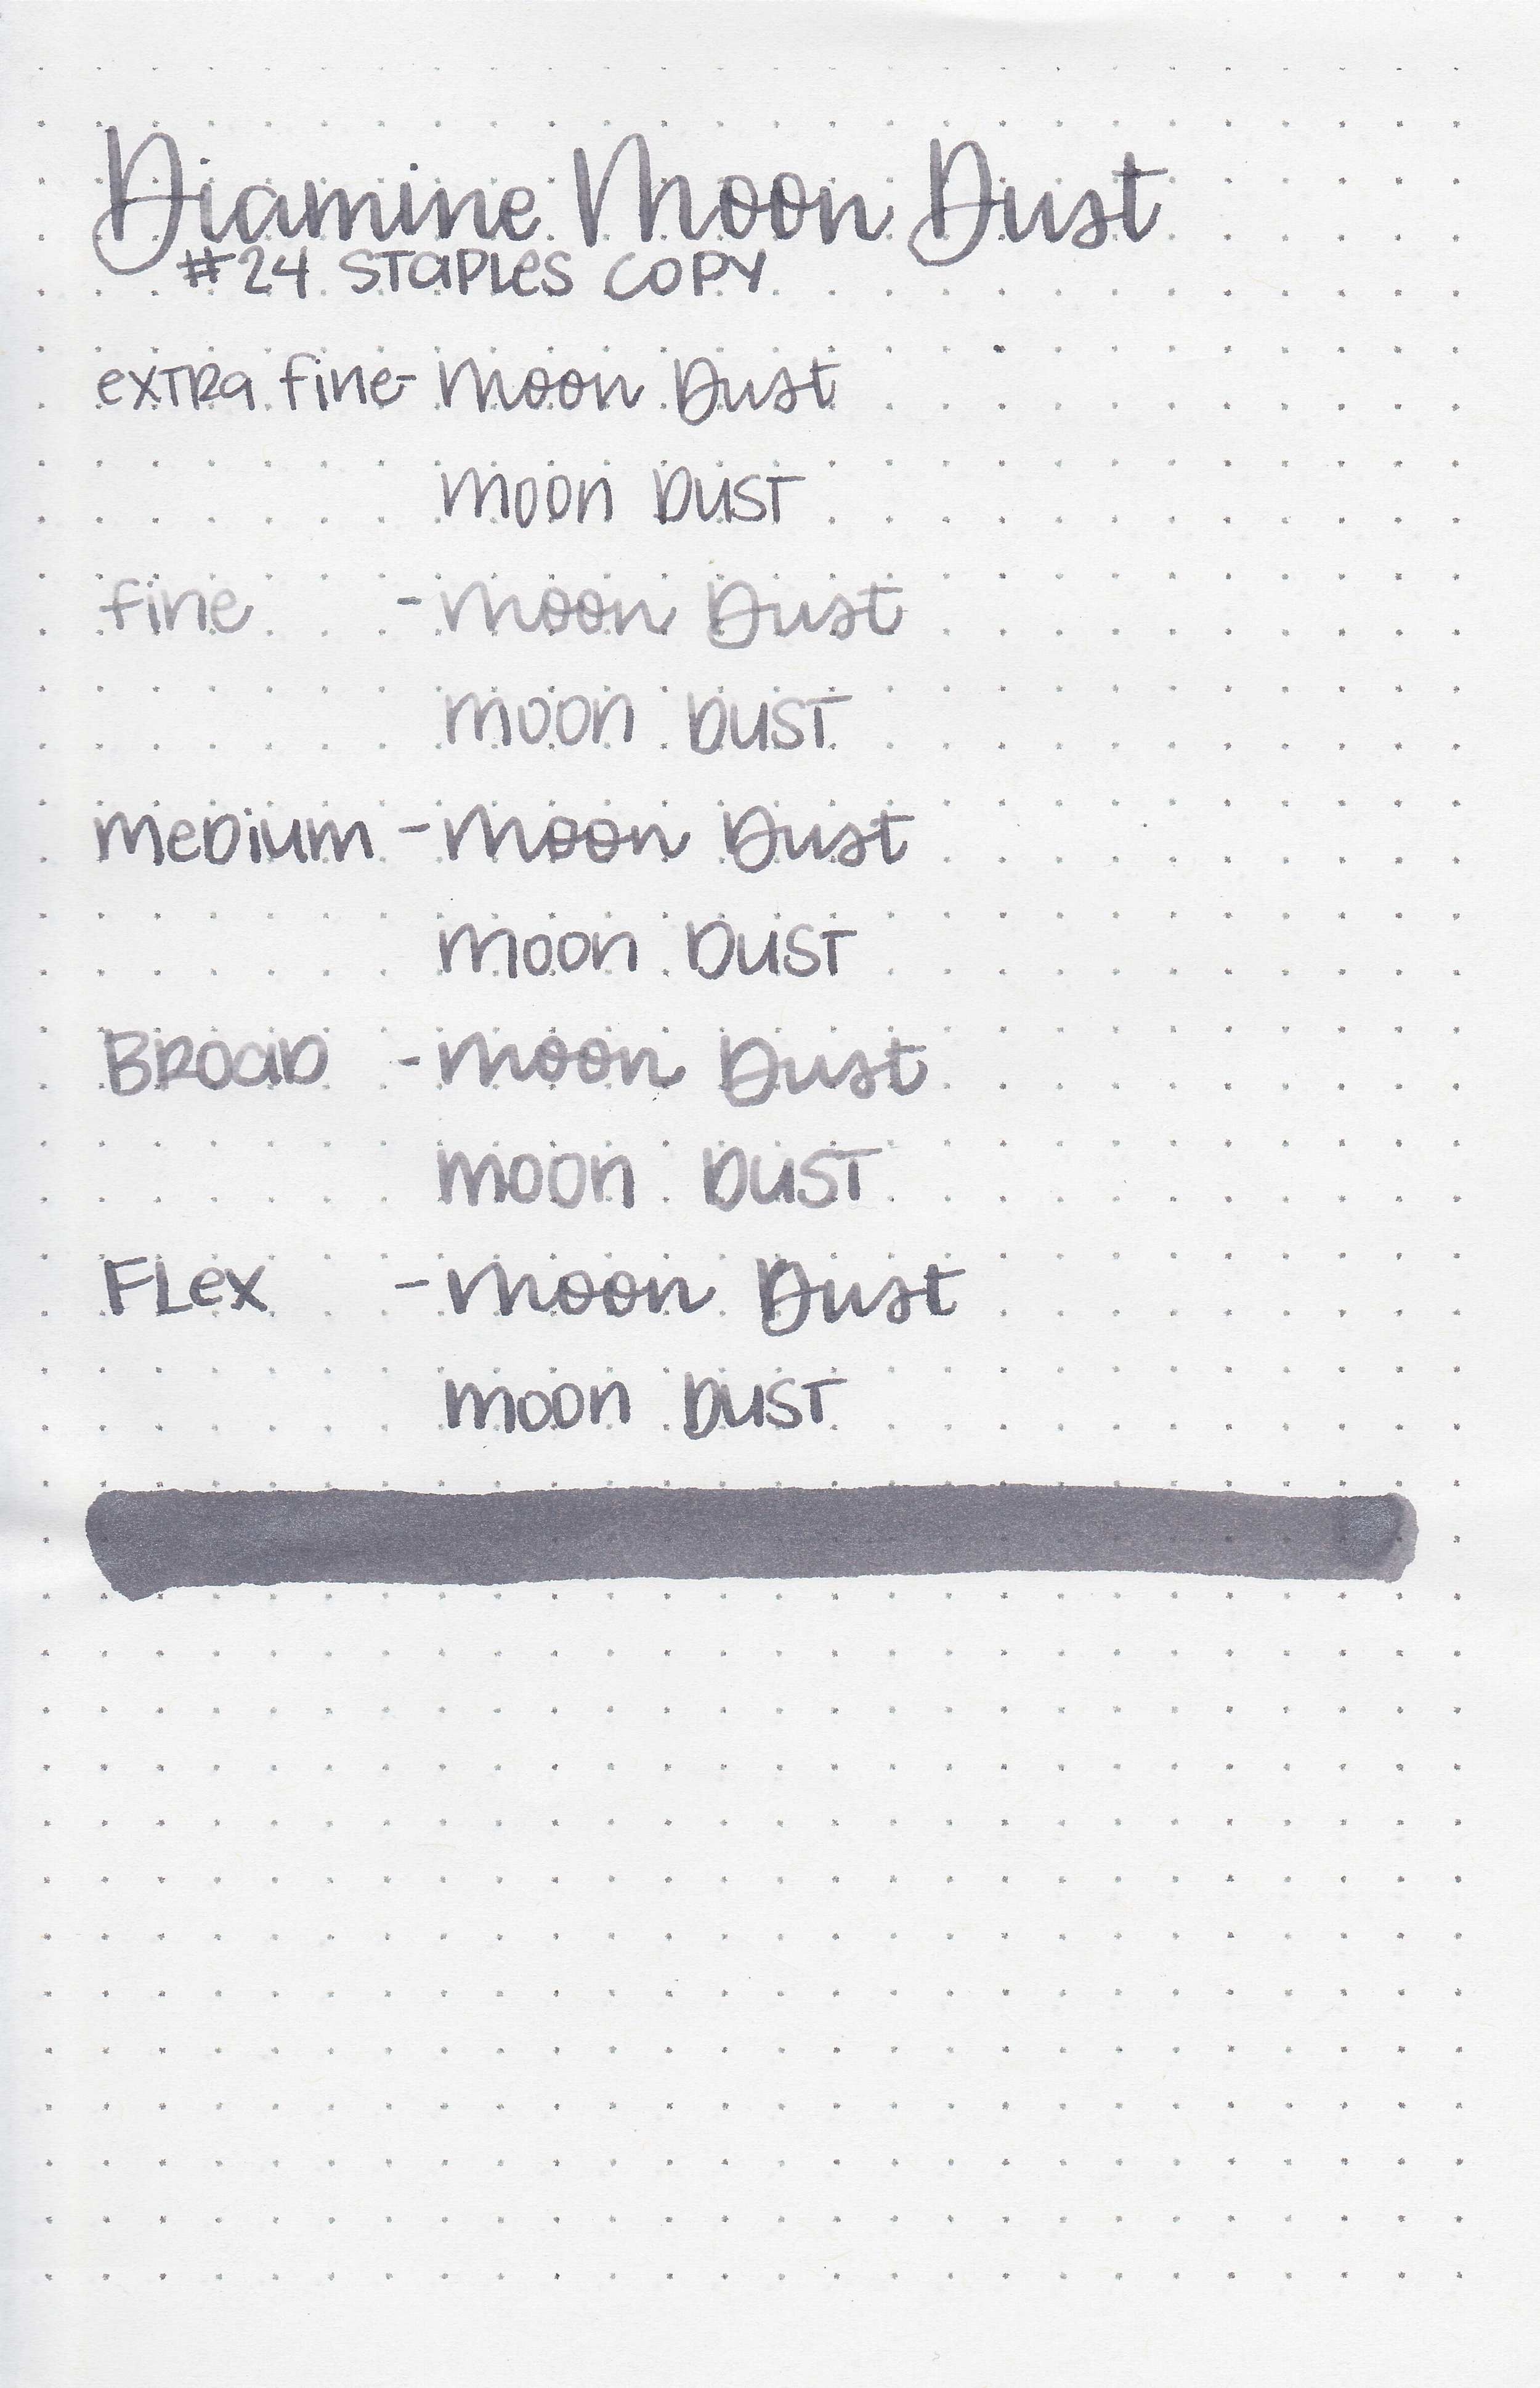 Diamine Moon Dust
#24 STaPLes COPY
exTRa fine- Moon Dust
Moon DUST
fine - Moon Dust
Moon DUST
MeDium - Moon Dust
Moon DUST
BROaD - Moon Dust
Moon DUST
FLex - Moon Dust
Moon DUST